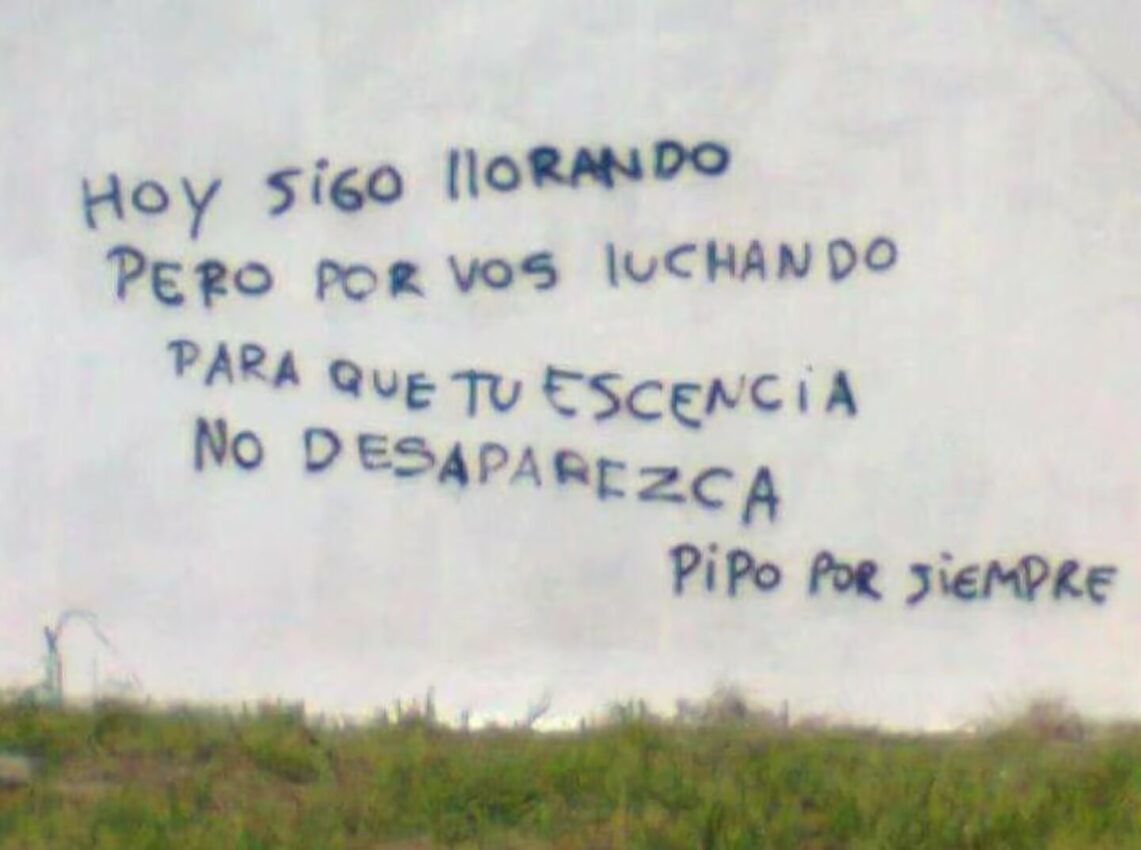 HOY SiGO llORANDO
PERO POR VOS lUCHANDO
PARA QUE TU ESCENCiA
NO DESAPAREZCA
PiPO POR SiEMPRE